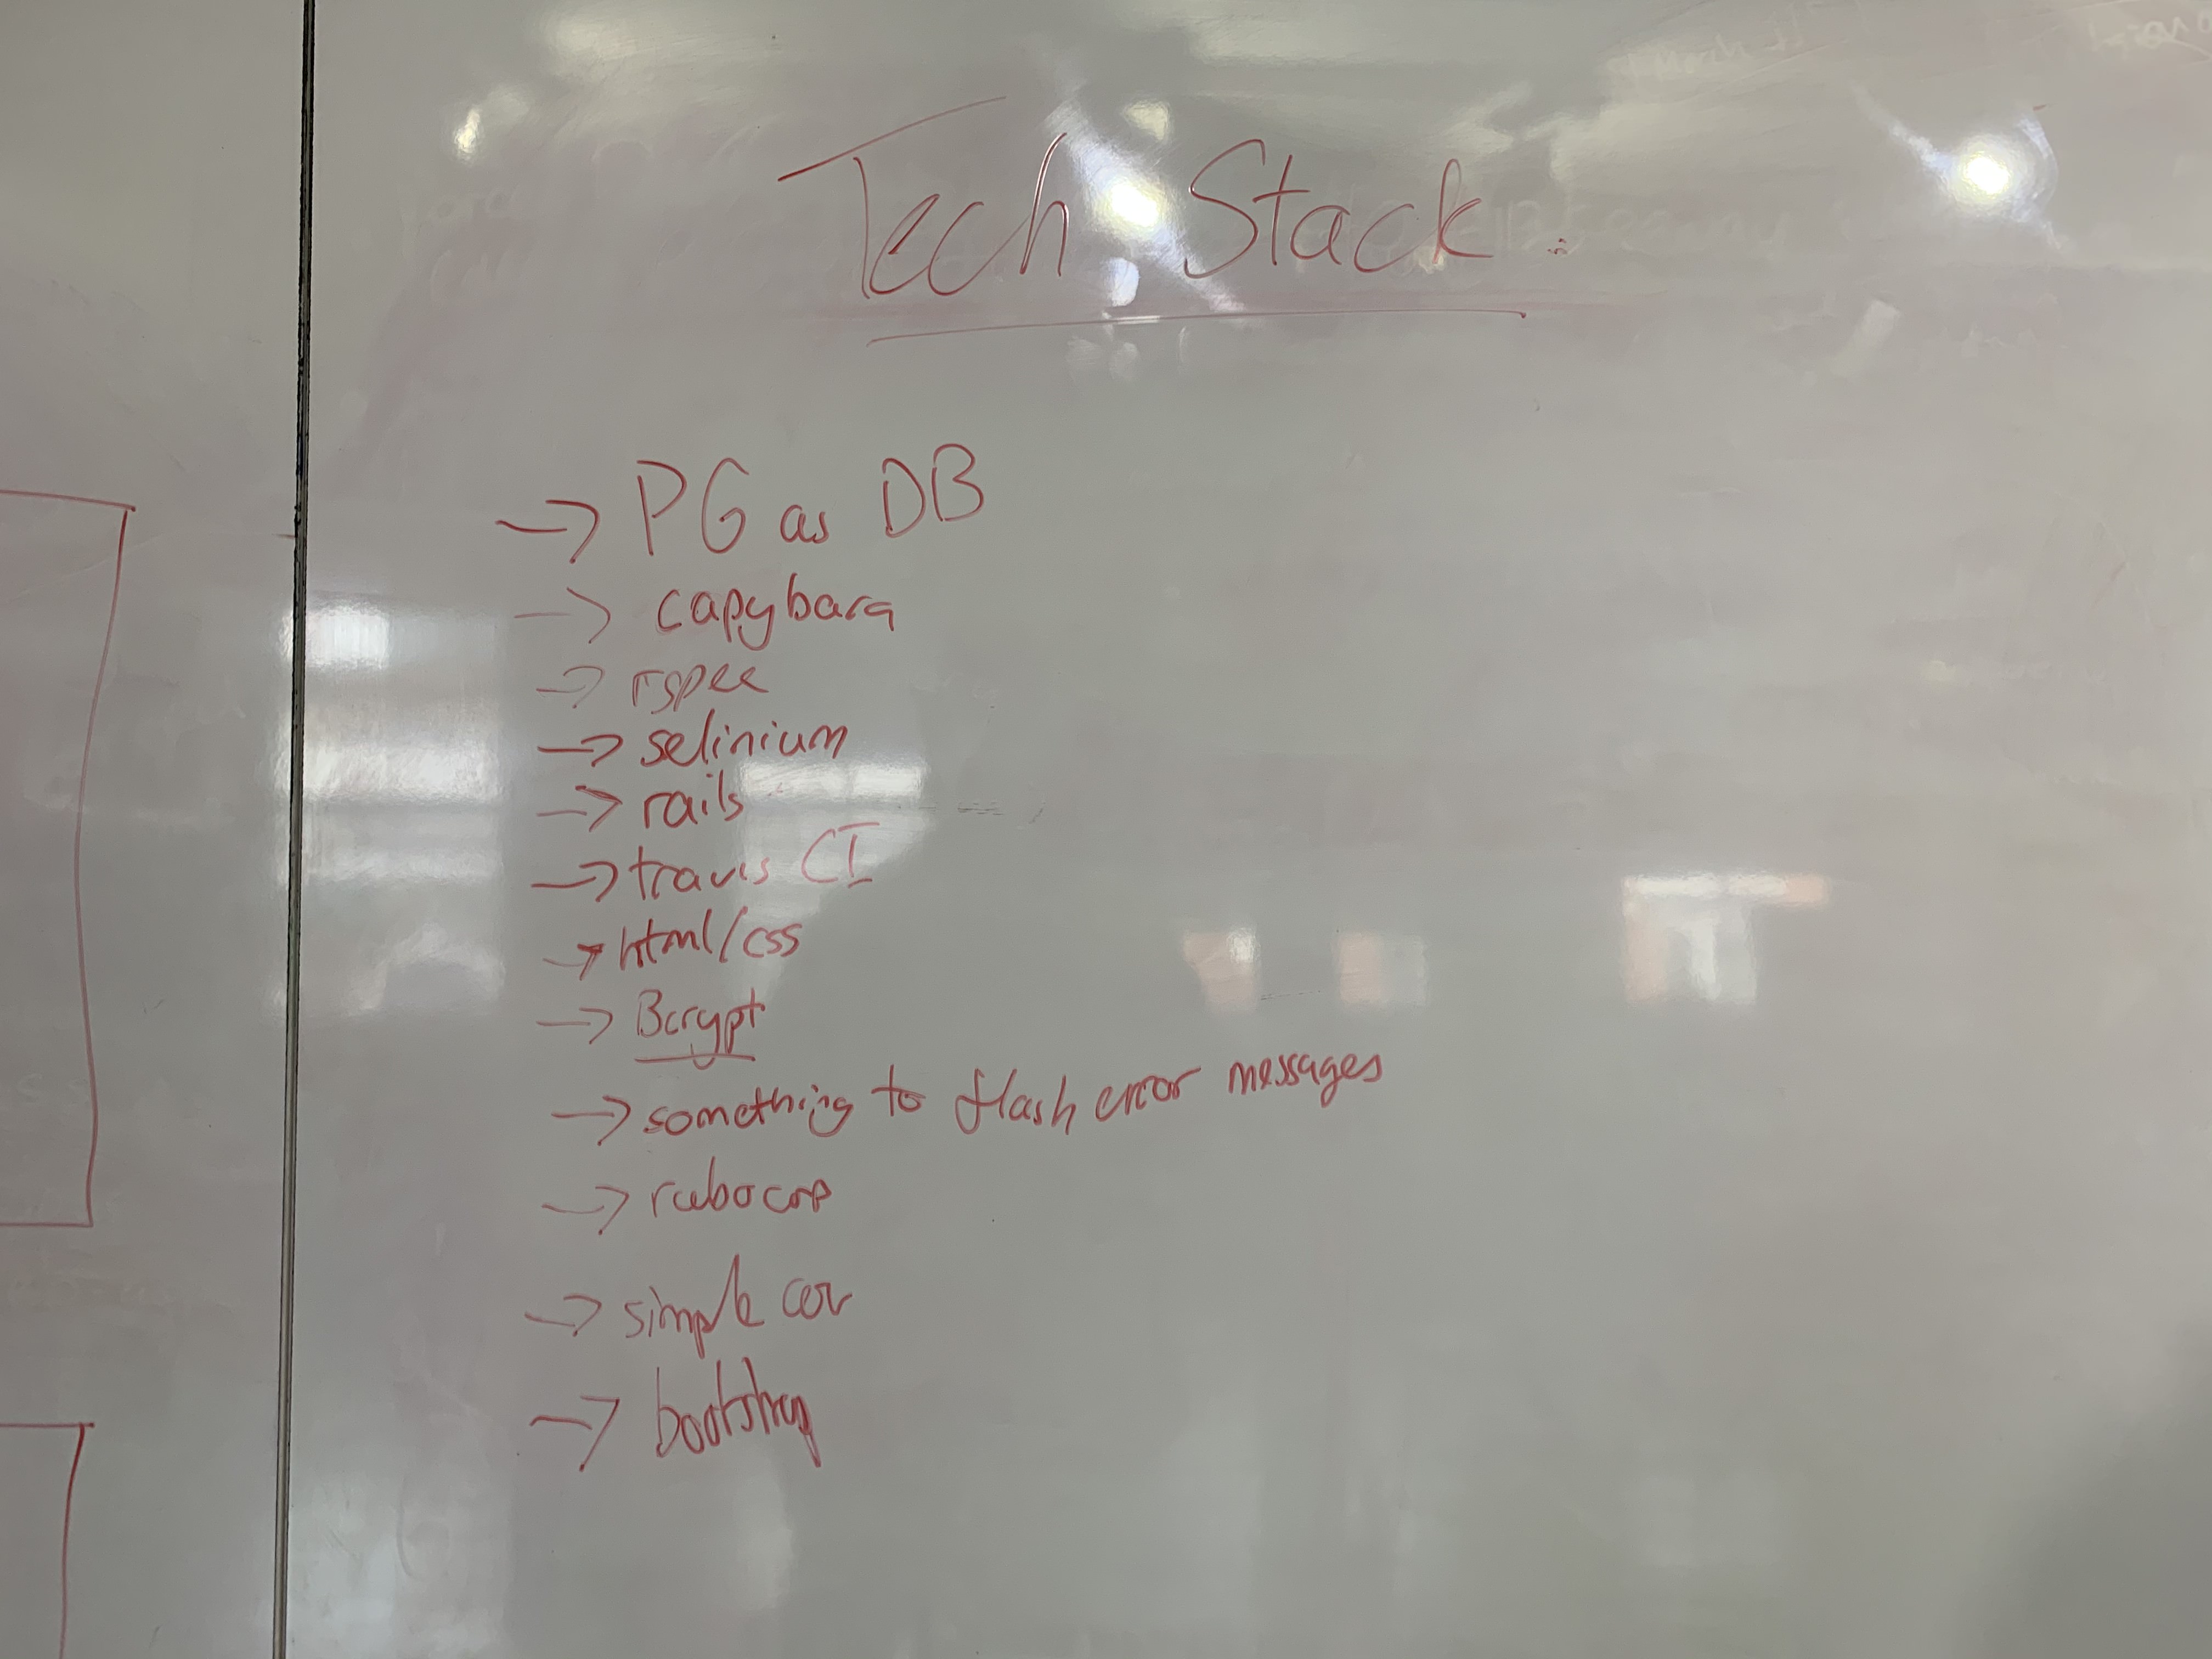 Tech Stack:
→ PG as DB
→ capybara
→ rspec
→ selinium
→ rails
→ travis CI
→ html/css
→ Bcrypt
→ something to flash error messages
→ rubocop
→ simple cov
→ bootstrap